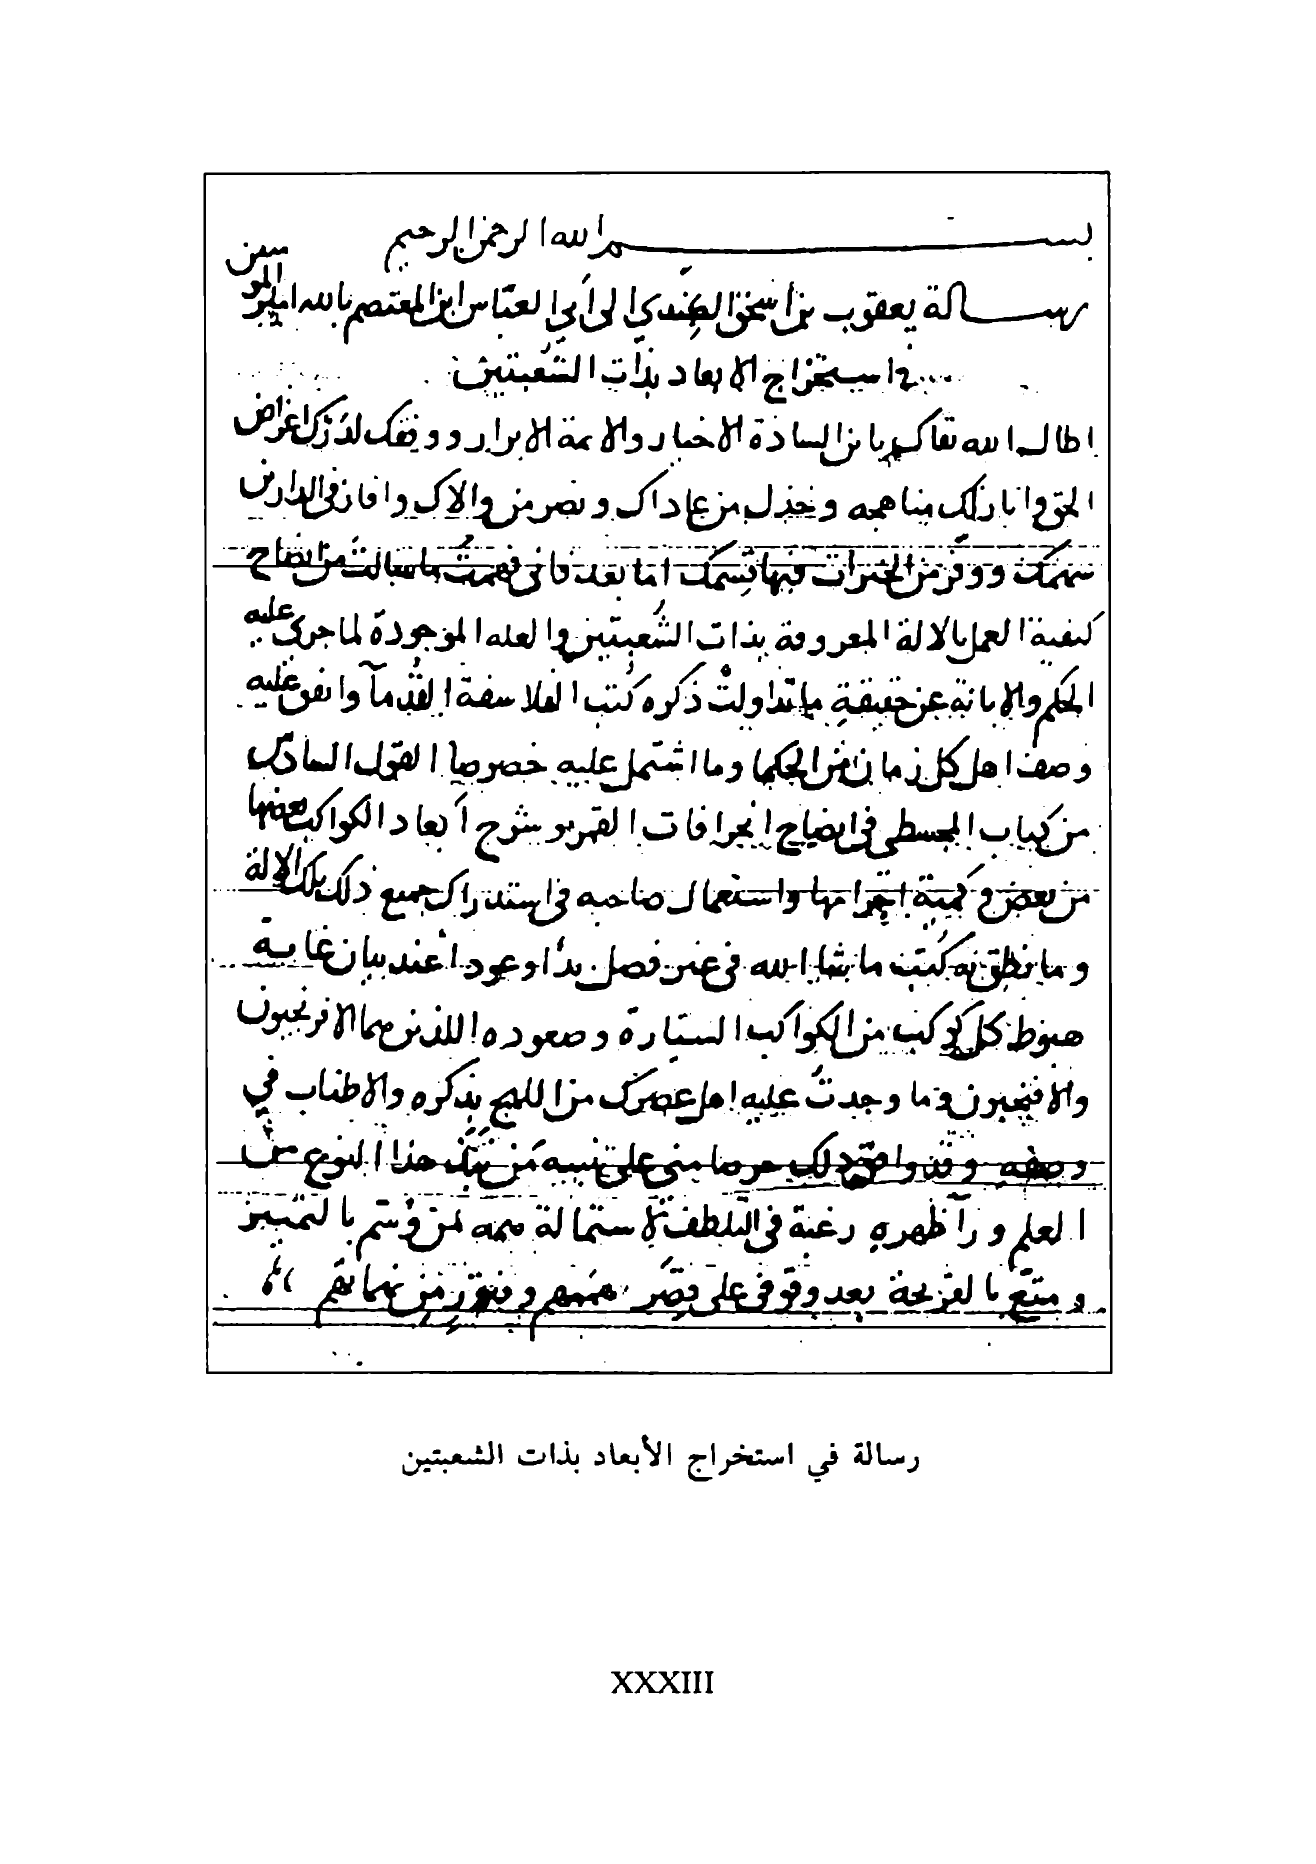 بسم الله الرحمن الرحيم
رسالة يعقوب بن اسحق الكندي الى أبي العباس ابن المعتصم بالله امير المومنين
في استخراج الابعاد بذات الشعبتين
اطال الله بقاك يا بن السادة الاخيار والايمة الابرار ووفقك لدرك اغراض
الحق وانار لك مناهجه وخذل من عاداك ونصر من والاك وافاز في الدارين
سهمك ووفر من الخيرات فيها قسمك اما بعد فانى فهمت ما سالت من ايضاح
كيفية العمل بالالة المعروفة بذات الشعبتين والعله الموجودة لما جرى عليه
الحكم والابانة عن حقيقة ما تداولت ذكره كتب الفلاسفة القدمآ واتفق عليه
وصف اهل كل زمان من الحكما وما اشتمل عليه خصوصا القول السادس
من كتاب المجسطي في ايضاح انحرافات القمر وشرح أبعاد الكواكب بعضها
من بعض وكمية اجرامها واستعمال صاحبه في استدراك جميع ذلك بتلك الالة
وما نطق به كتب ما شا الله في غير فصل بدأ وعودا عند بيان غاية
هبوط كل كوكب من الكواكب السيارة وصعوده اللذين هما الافرنجيون
والافيجيون وما وجدت عليه اهل عصرك من اللهج بذكره والاطناب في
وصفه وقد واضح ذلك حرصا منى على تنبيه من هذا النوع من
العلم ورآ ظهره رغبة في التلطف لاستمالة همه لمن وسم بالتمييز
ومتع بالقريحة بعد وقوفى على قصر هممهم وفتور من نهماتهم
رسالة في استخراج الأبعاد بذات الشعبتين
XXXIII